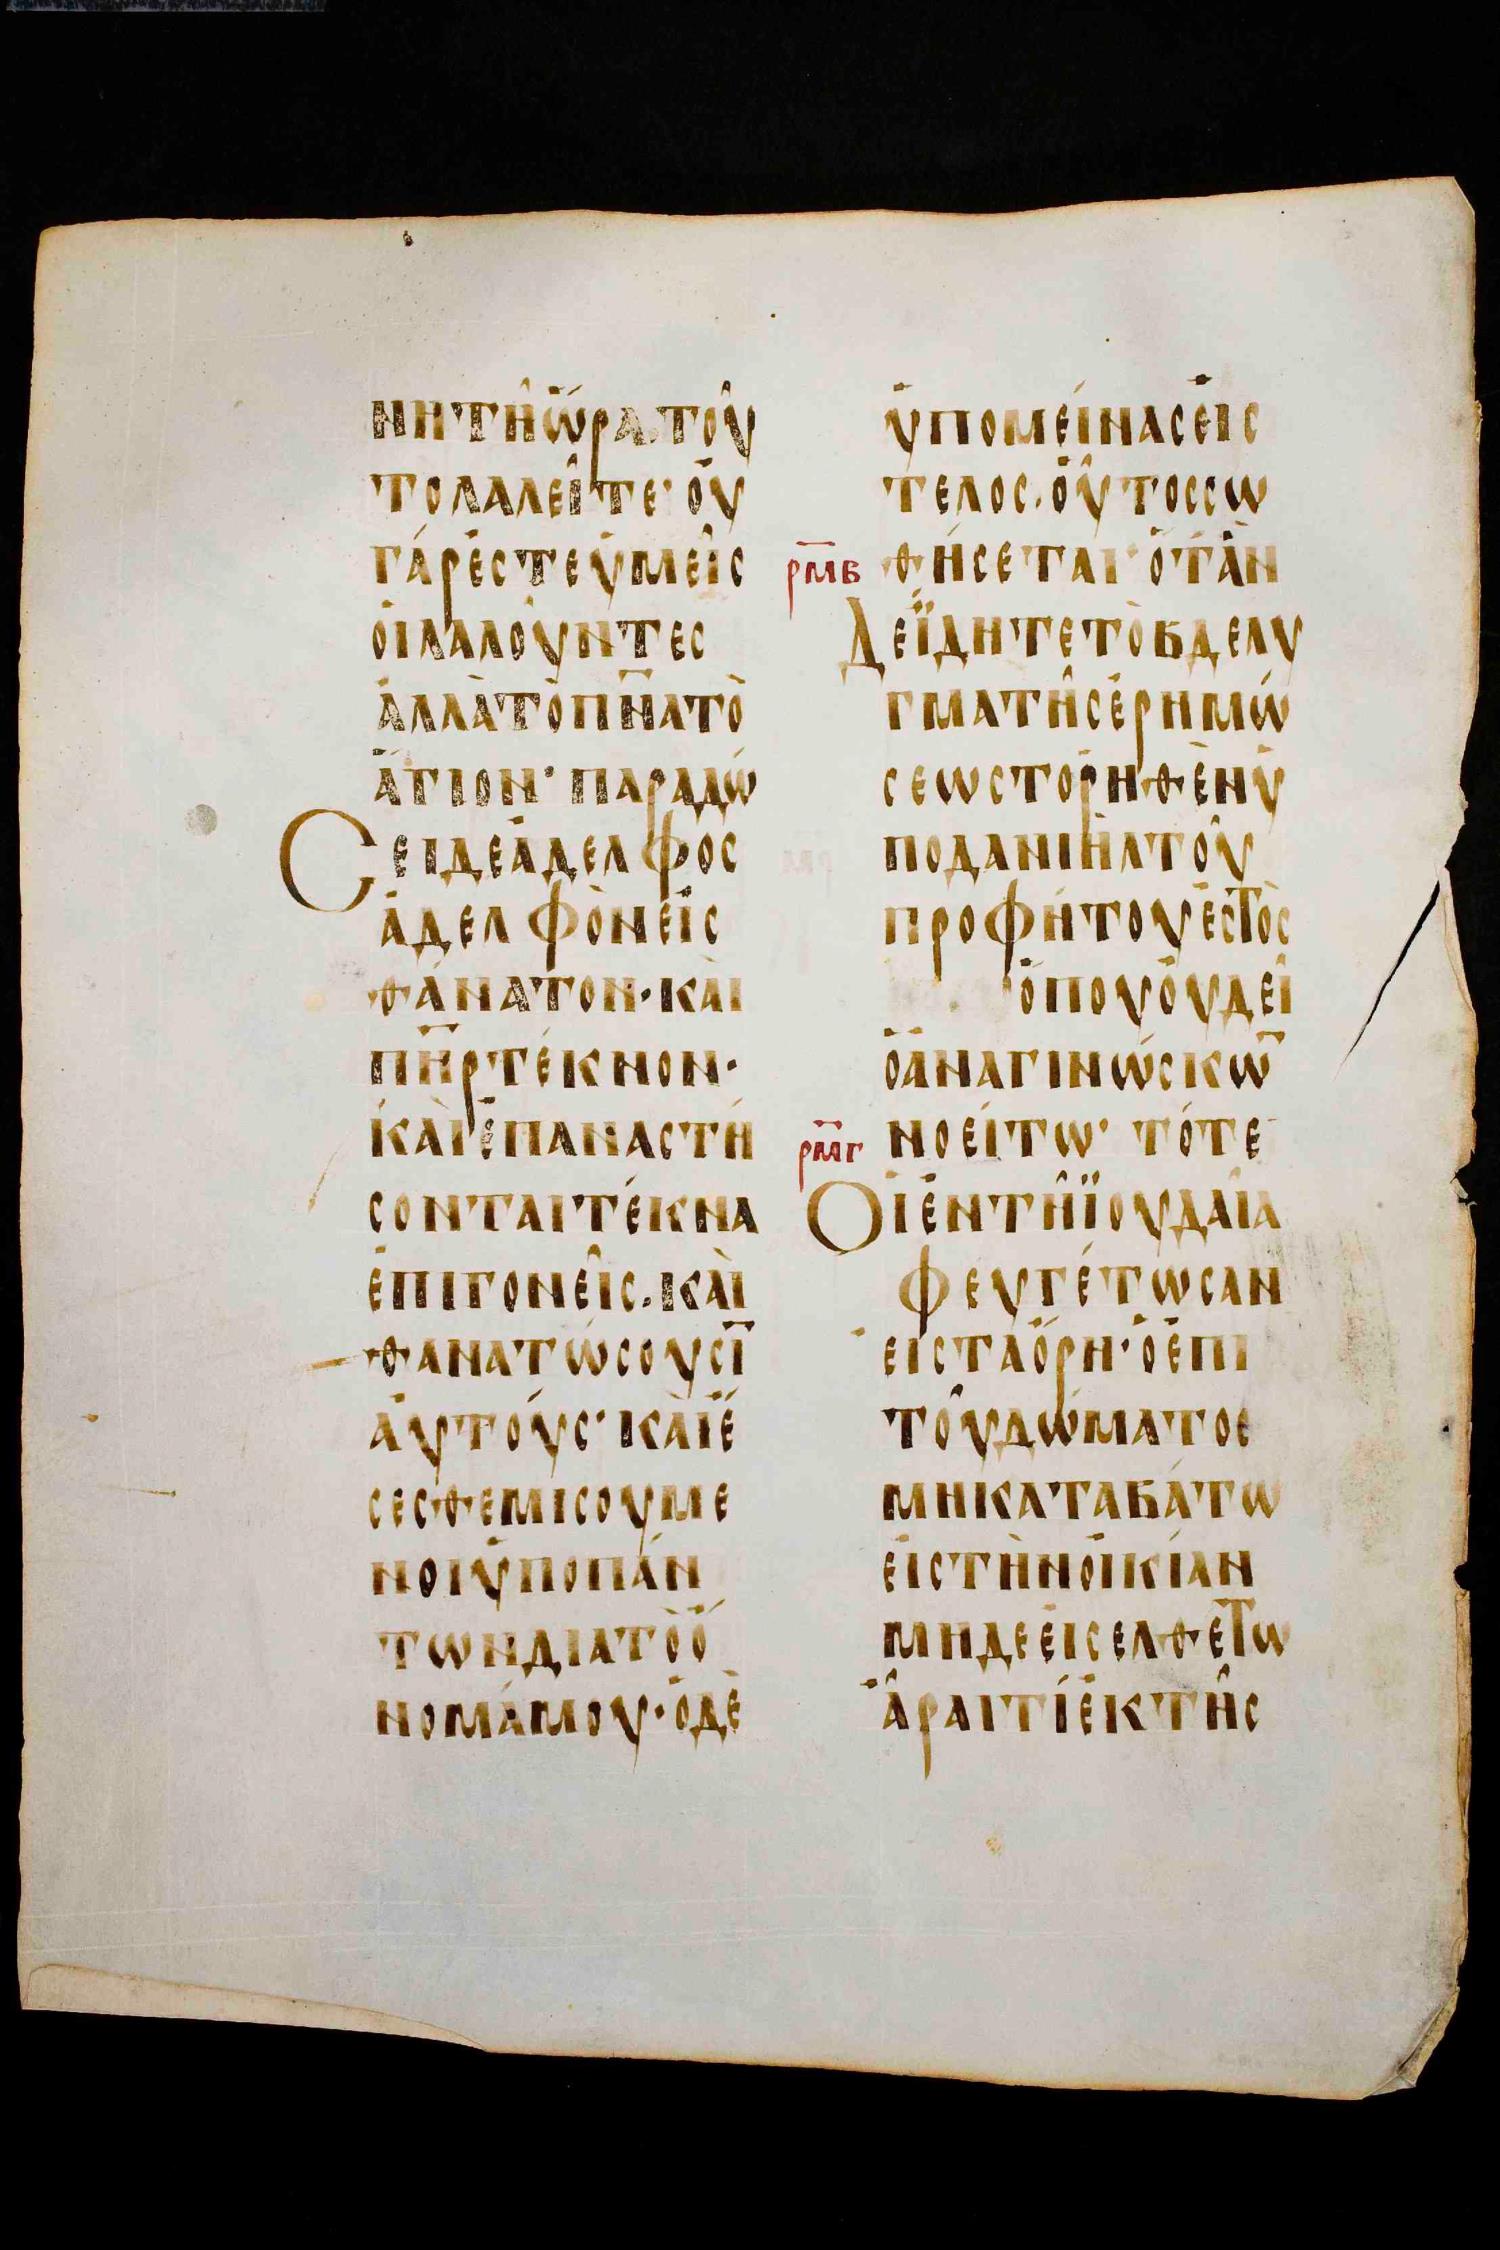 νη τῆ ὥρα. τοῦ
το λαλεῖτε· οὐ
γάρ ἐστε ὑμεῖς
οἱ λαλοῦντες
ἀλλὰ τὸ πν̅α τὸ
ἅγιον· παραδώ
Σει δὲ ἀδελφος
ἀδελφὸν εἰς
θάνατον· καὶ
πη̅ρ τέκνον·
καὶ ἐπαναστή
σονται τέκνα
ἐπι γονεῖς. καὶ
θανατώσουσι̅
αὐτούς· καὶ ἔ
σεσθε μισουμε
νοι ὑπο πάν
των δια τὸ ὄ
νομά μου· ὁ δὲ
ὑπομείνας εἰς
τελος. οὗτος σω
ρ̅μ̅β̅ θήσεται· ὅτὰν
Δε ἴδητε τὸ βδελυ
γμα τῆς ἐρημώ
σεως το ρηθὲν ὑ
πο δανιὴλ τοῦ
προφήτου ἑστὸς
ὅπου οὐ δεῖ
ὁ ἀναγινώσκω̅
ρ̅μ̅γ̅ νοείτω· τότε
Οἱ ἐν τῆ ϊουδαία
φευγέτωσαν
εἰς τα ὄρη· ὁ ἐπι
τοῦ δώματος
μη καταβάτω
εἰς τὴν οἰκίαν
μηδε εἰσελθετω
ἆραι τί ἐκ τῆς